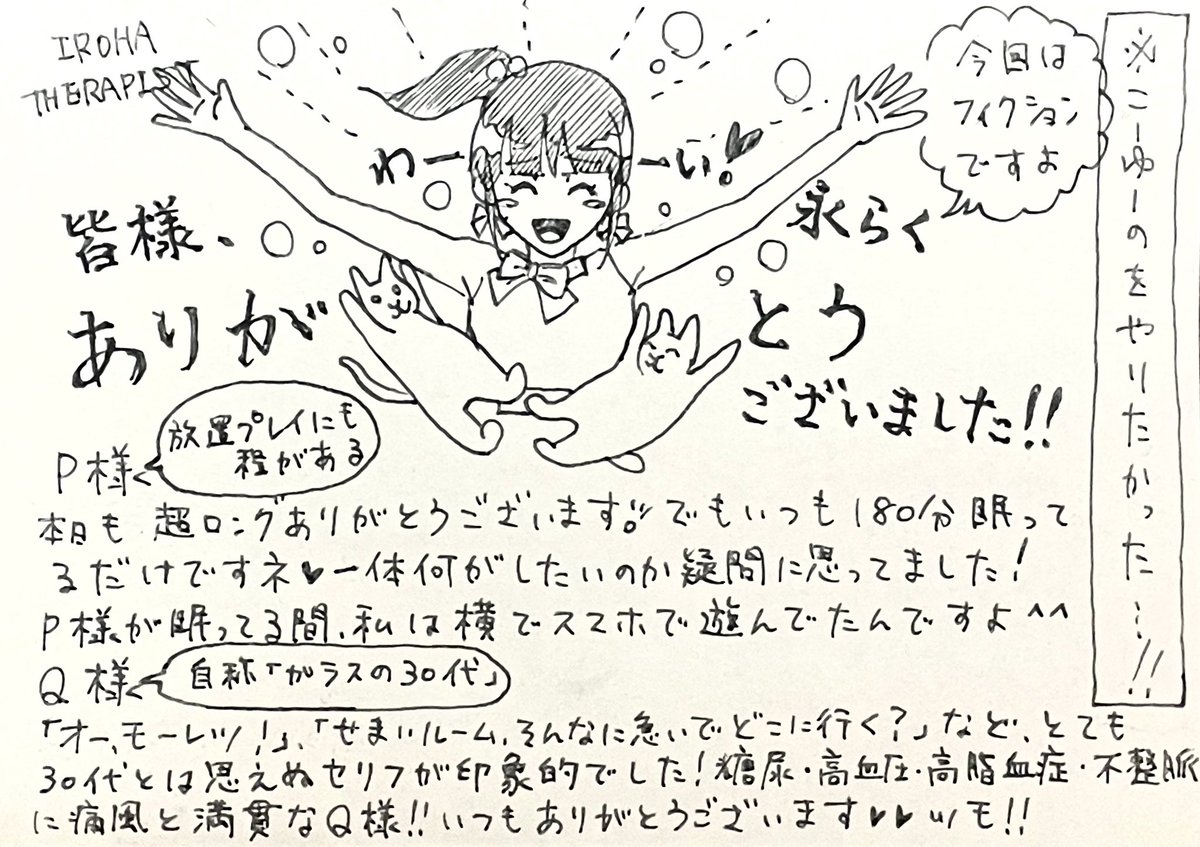 IROHA
THERAPIST
わーーい!♥
今回は
フィクション
ですよ
※こーゆーのをやりたかった…!!
皆様、永らく
ありがとう
ございました!!
P様
放置プレイにも
程がある
本日も超ロングありがとうございます!! でもいつも180分眠って
るだけですネ♥一体何がしたいのか疑問に思ってました!
P様が眠ってる間、私は横でスマホで遊んでたんですよ^^
Q様
自称「ガラスの30代」
「オー、モーレツ!」、「せまいルーム、そんなに急いでどこに行く?」など、とても
30代とは思えぬセリフが印象的でした!糖尿・高血圧・高脂血症・不整脈
に痛風と満貫なQ様!!いつもありがとうございます♥♥いつも!!